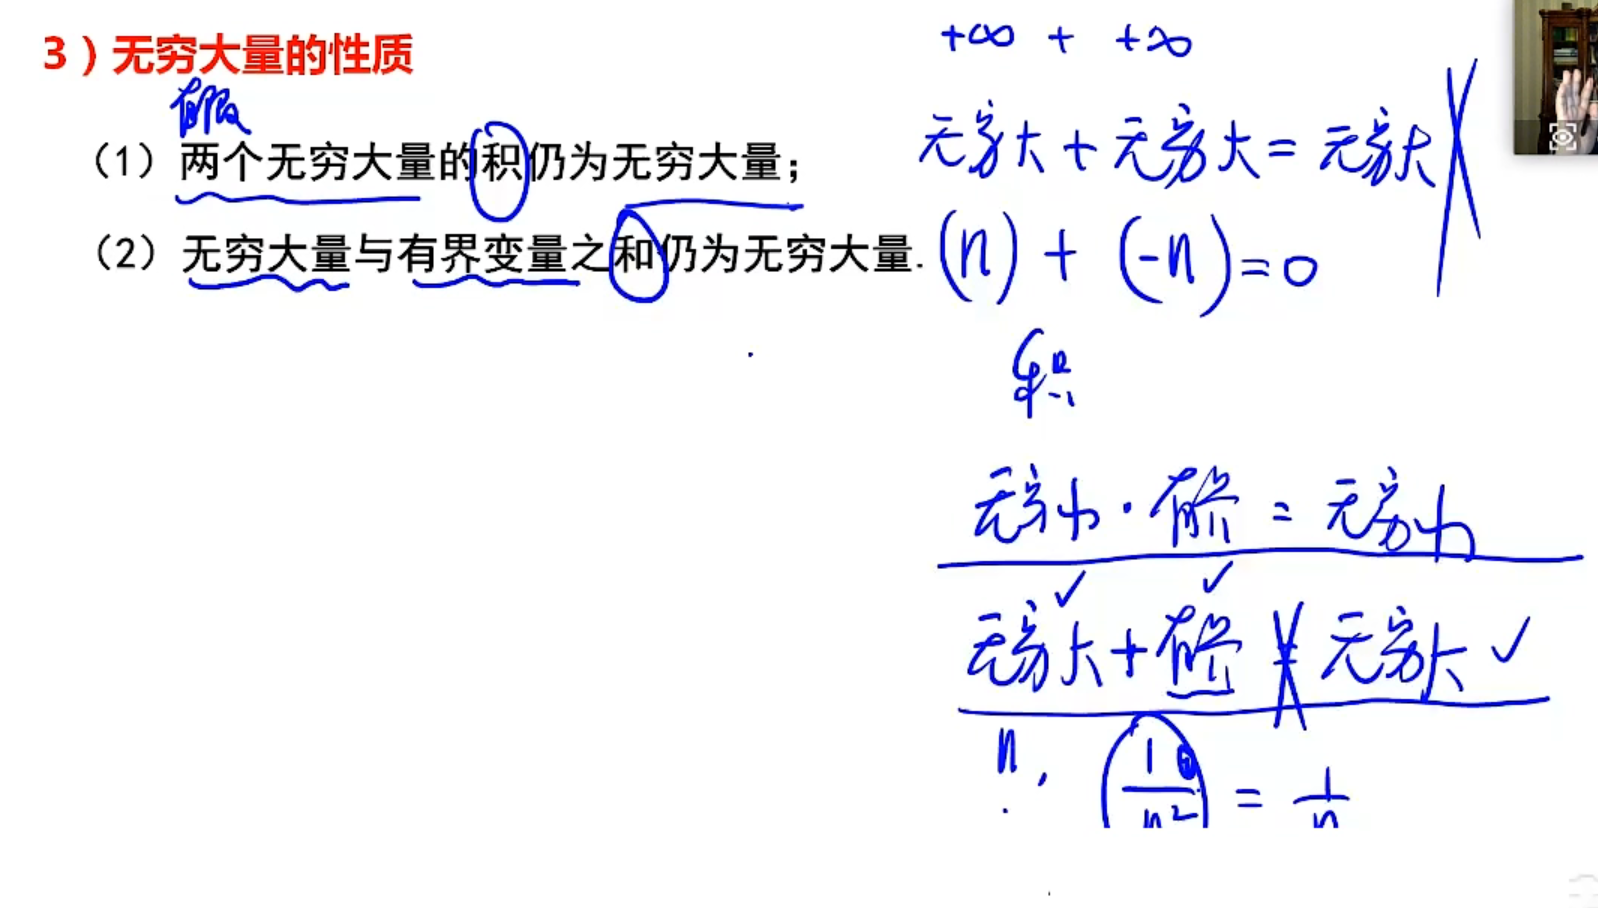 3）无穷大量的性质
有限
（1）两个无穷大量的积仍为无穷大量；
（2）无穷大量与有界变量之和仍为无穷大量.
+∞ + +∞
无穷大+无穷大=无穷大
(n) + (-n)=0
积
无穷小·有界=无穷小
无穷大+有界=无穷大
n, 1/n² = 1/n